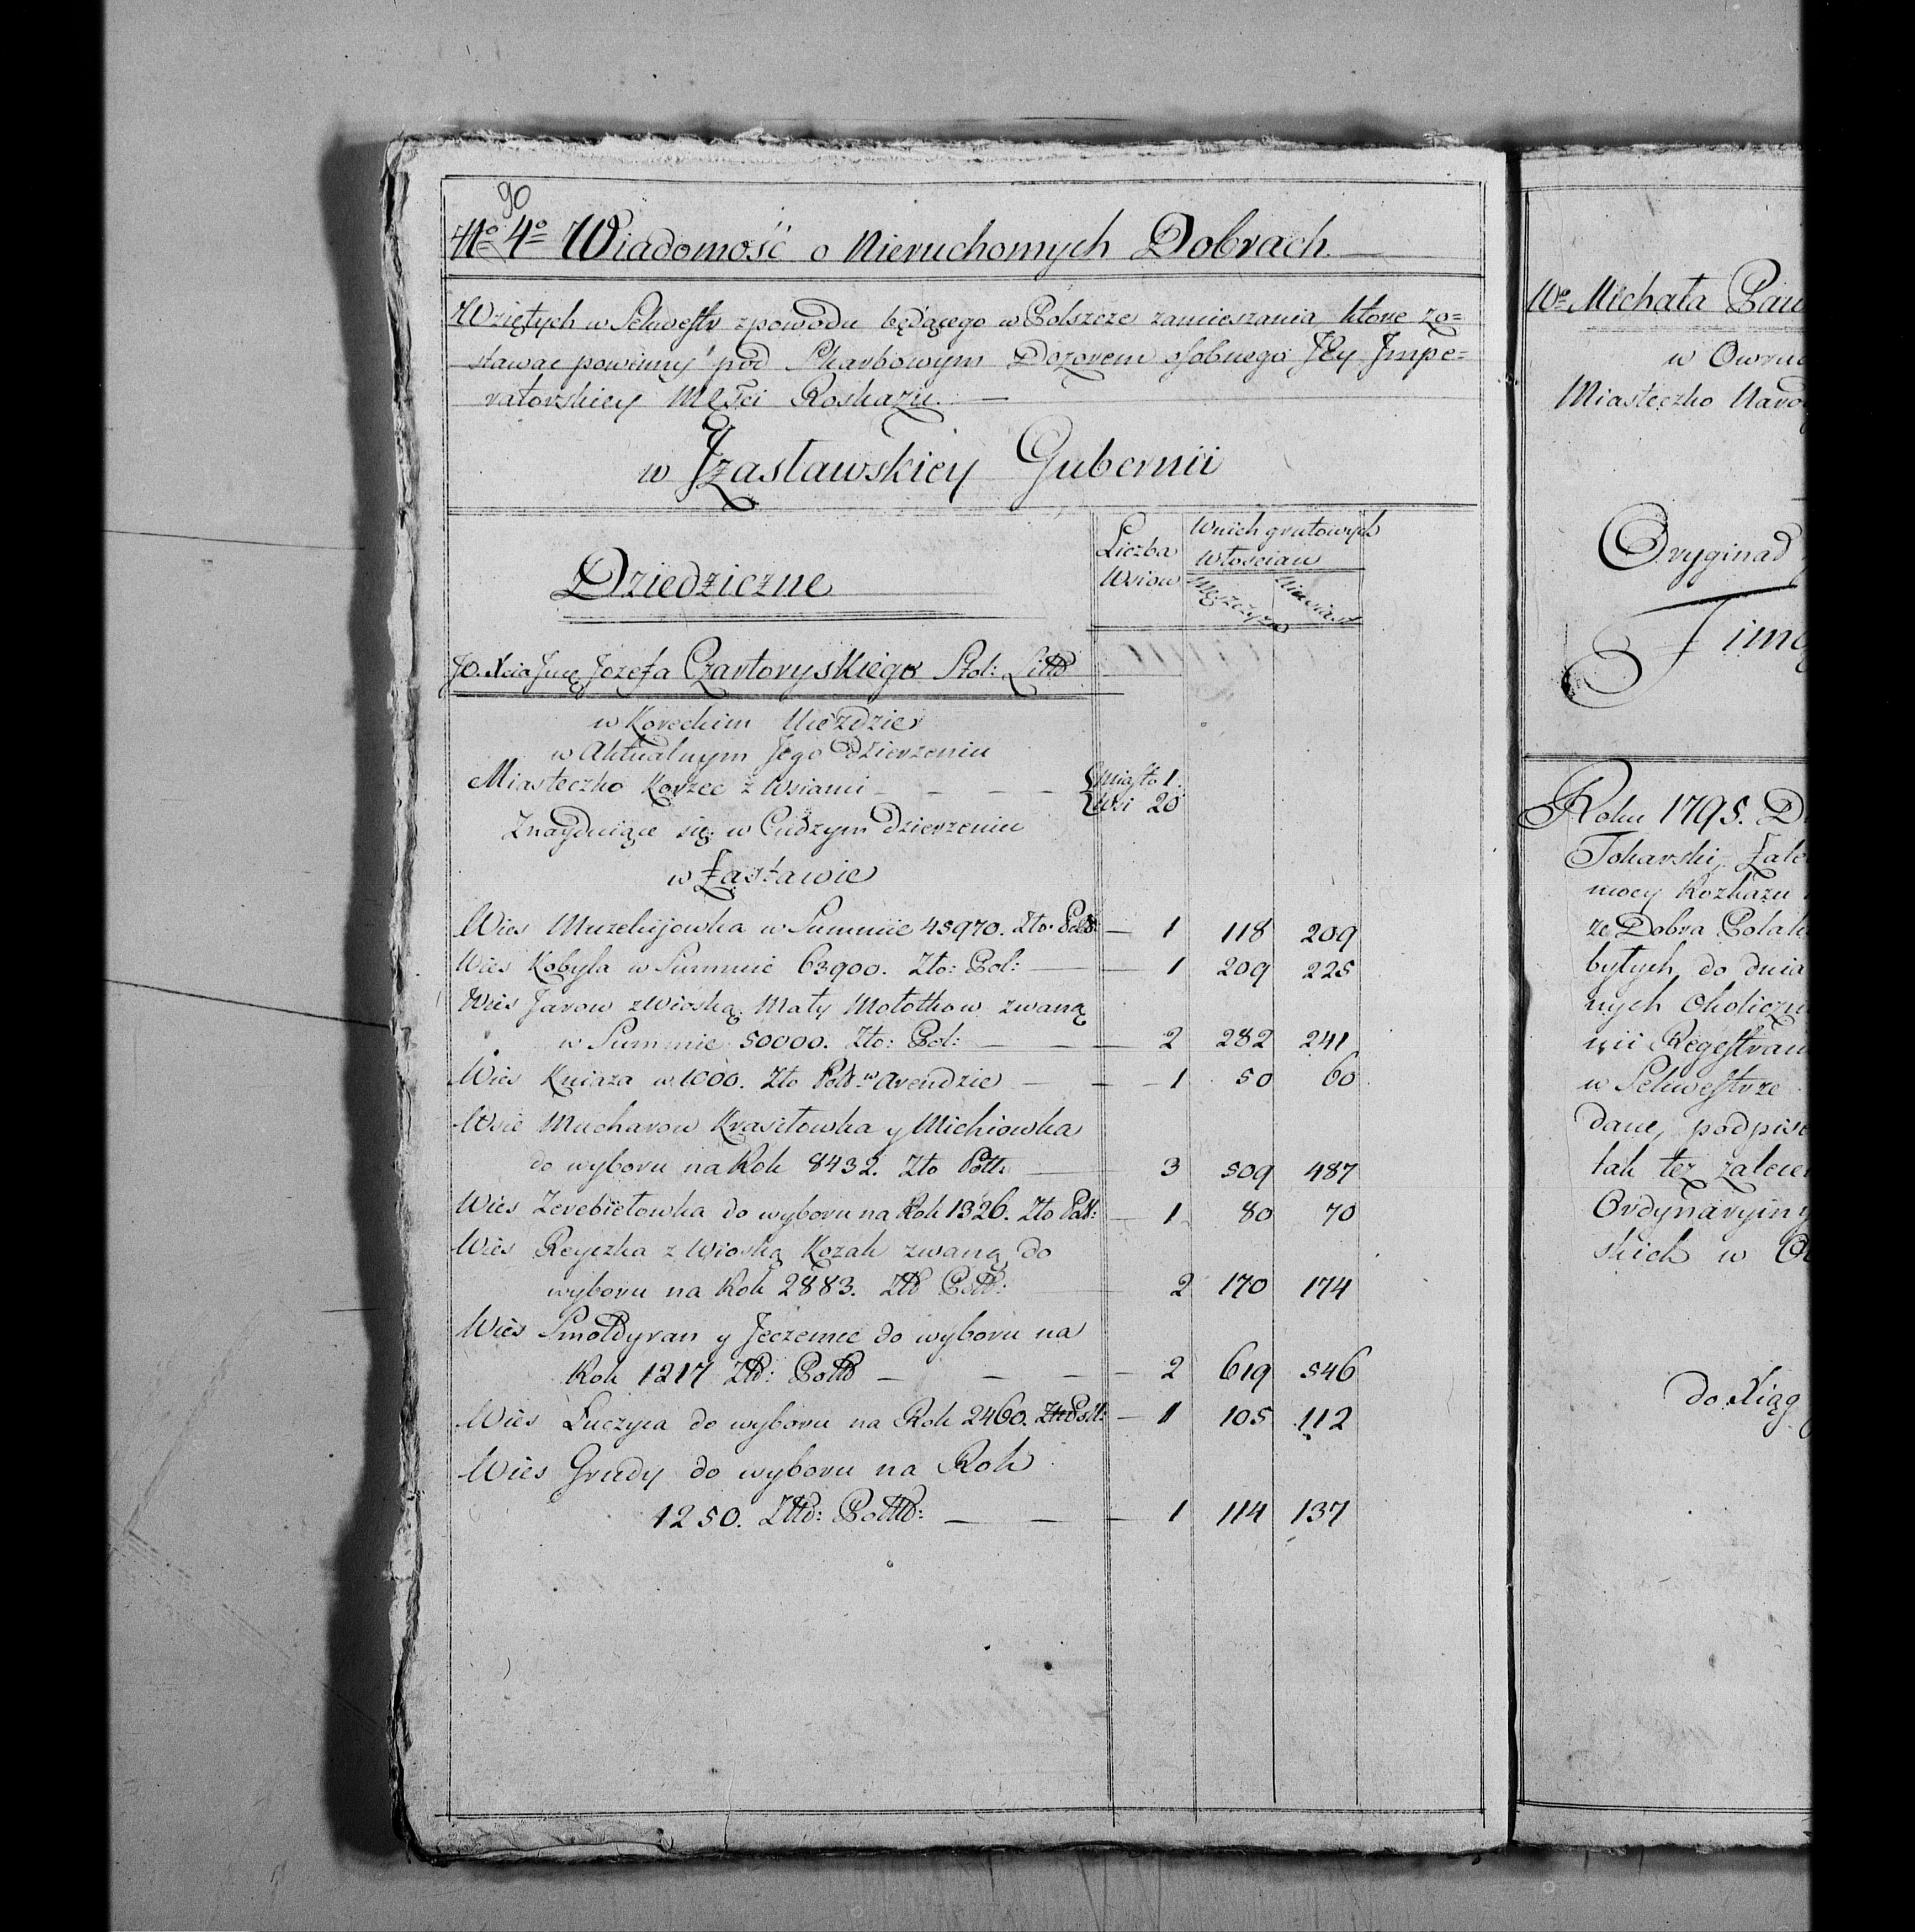 90
No 4o Wiadomość o Nieruchomych Dobrach.
Wziętych w Sekwestr z powodu będącego w Polszcze zamieszania które zo=
stawac powinny pod Skarbowym Dozorem osobnego Jey Impe=
ratorskiey Mości Roskazu.
w Jzasławskiey Gubernii
Dziedziczne
Liczba
Wsiow
Wnich grutowych
Włościan
Męszczyzn
Niewiast
JO. Xcia Jmę Jozefa Czartoryskiego Stol: Litt
w Koreckim Uiezdzie
w Aktualnym Jego Dzierzeniu
Miasteczko Korzec z Wsiami — — — — {Miasto 1.
{Wsi 20
Znayduiące się w Cudzym Dzierzeniu
w Zastawie
Wies Muzekijowka w Summie 45970. Zto: Pol: — 1 118 209
Wies Kobyla w Summie 63900. Zło: Pol: — 1 209 225
Wies Jarow z Wioską Mały Mołotkow zwaną
w Summie 50000. Zło: Pol: — — — 2 282 241
Wies Kniaza w 1000. Zło Pol: w Arendzie — — — 1 50 60
Wsie Mucharow Krasiłowka y Michiowka
do wyboru na Rok 8432. Zło Pol: — 3 509 487
Wies Zerebiełowka do wyboru na Rok 1326. Zło Pol: — 1 80 70
Wies Reyczka z Wioską Kozak zwaną do
wyboru na Rok 2883. Zło Pol: — 2 170 174
Wies Smołdyran y Jeczemie do wyboru na
Rok 1217 Zło: Pol — — — — 2 619 546
Wies Luczyca do wyboru na Rok 2460. Zło Pol: — 1 105 112
Wies Grudy do wyboru na Rok
1250. Zło: Pol: — — — 1 114 137
Wo Michała Pau
w Owruc
Miasteczko Naro
Oryginad
Timo
Roku 1795. D
Tokarski, Zale
mocy Rozkazu
ze Dobra Polak
bytych do dnia
nych Okoliczn
nii Regestram
w Sekwestrze
dane, podpise
tak tez zalece
Ordynaryiny
skich w O
do Xiąg